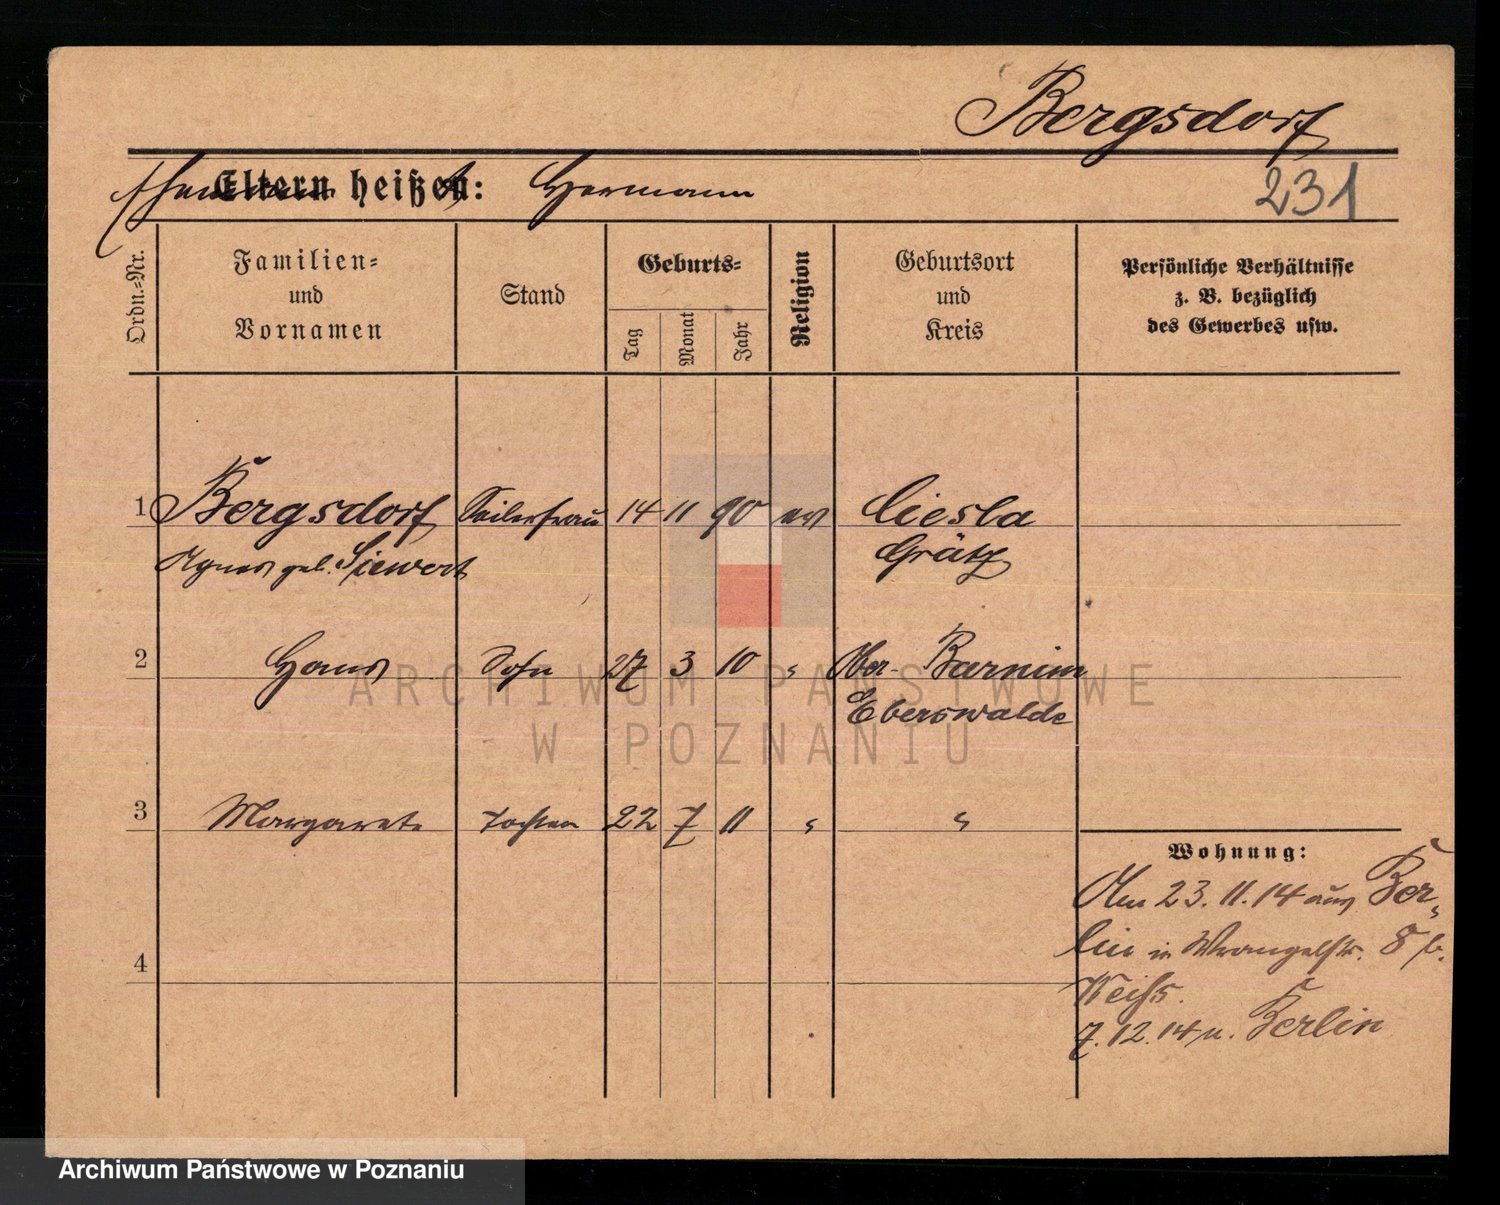 Bergsdorf
Ehemann Eltern heißen: Hermann
231
Ordn.=Nr.
Familien=
und
Vornamen
Stand
Geburts=
Tag
Monat
Jahr
Religion
Geburtsort
und
Kreis
Persönliche Verhältnisse
z. B. bezüglich
des Gewerbes usw.
1 Bergsdorf Seilerfrau 14 11 90 ev Ciesla
Agnes geb. Siewert Grätz
2 Hans Sohn 27 3 10 " Ober-Barnim
Eberswalde
3 Margarete Tochter 22 7 11 " "
Wohnung:
Am 23. 11. 14 aus Ber-
lin in Wrangelstr. 8 b.
Weiß.
7. 12. 14 n. Berlin
4
ARCHIWUM PAŃSTWOWE
W POZNANIU
Archiwum Państwowe w Poznaniu